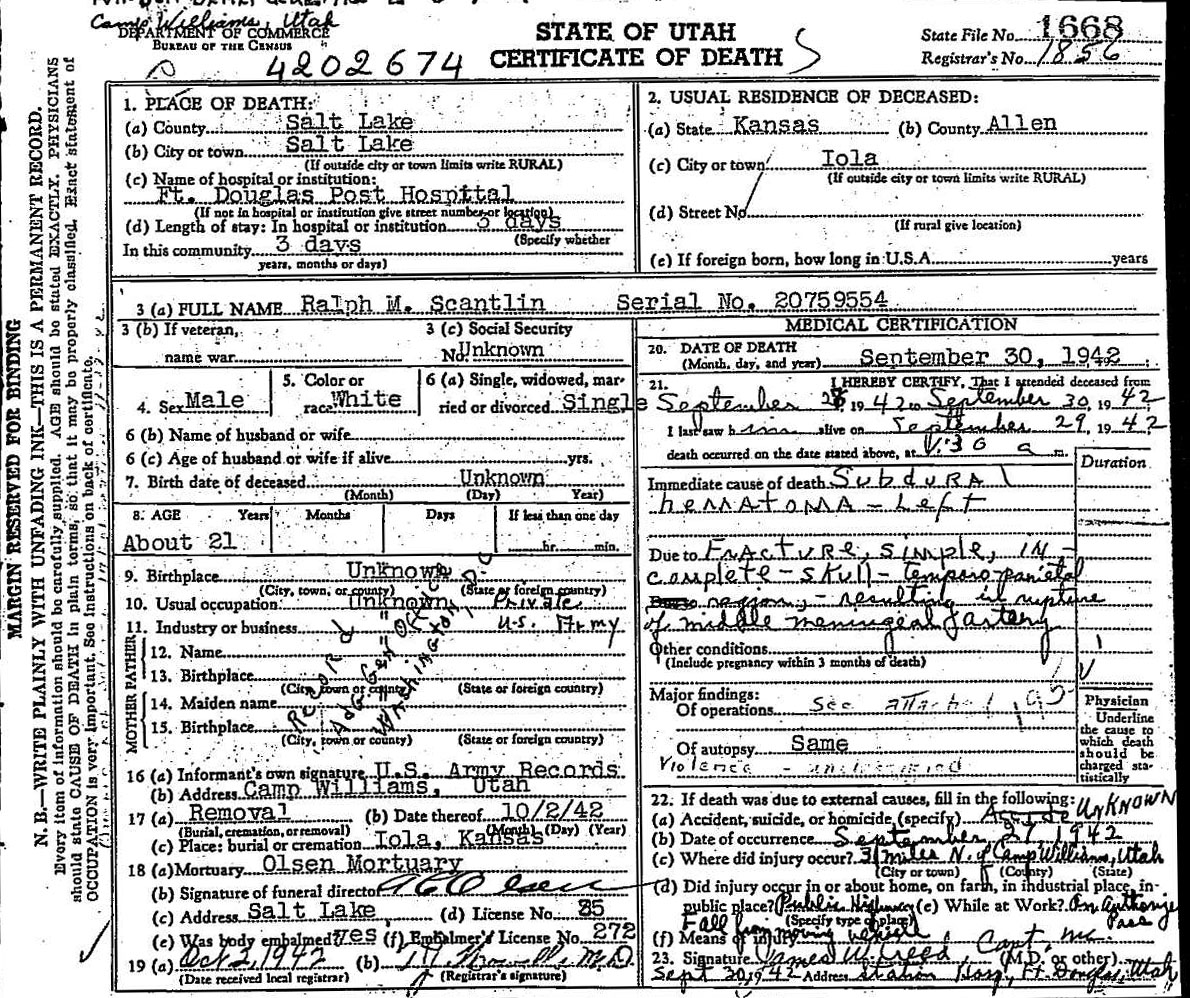 Camp Williams, Utah
DEPARTMENT OF COMMERCE
BUREAU OF THE CENSUS
4202674
STATE OF UTAH
CERTIFICATE OF DEATH
State File No. 1668
Registrar's No. 1856
MARGIN RESERVED FOR BINDING
N. B.—WRITE PLAINLY WITH UNFADING INK—THIS IS A PERMANENT RECORD.
Every item of information should be carefully supplied. AGE should be stated EXACTLY. PHYSICIANS
should state CAUSE OF DEATH in plain terms, so that it may be properly classified. Exact statement of
OCCUPATION is very important. See instructions on back of certificate.
1. PLACE OF DEATH:
(a) County Salt Lake
(b) City or town Salt Lake
(If outside city or town limits write RURAL)
(c) Name of hospital or institution:
Ft. Douglas Post Hospttal
(If not in hospital or institution give street number or location)
(d) Length of stay: In hospital or institution 3 days
(Specify whether
In this community 3 days
years, months or days)
2. USUAL RESIDENCE OF DECEASED:
(a) State Kansas (b) County Allen
(c) City or town Iola
(If outside city or town limits write RURAL)
(d) Street No
(If rural give location)
(e) If foreign born, how long in U.S.A. years
3 (a) FULL NAME Ralph M. Scantlin Serial No. 20759554
3 (b) If veteran, 3 (c) Social Security
name war No. Unknown
4. Sex Male 5. Color or race White 6 (a) Single, widowed, married or divorced Single
6 (b) Name of husband or wife
6 (c) Age of husband or wife if alive yrs.
7. Birth date of deceased Unknown
(Month) (Day) Year)
8. AGE Years Months Days If less than one day
About 21 hr. min.
9. Birthplace Unknown
(City, town, or county) (State or foreign country)
10. Usual occupation Unknown Private
11. Industry or business U.S. Army
FATHER
12. Name
13. Birthplace
(City, town or county) (State or foreign country)
MOTHER
14. Maiden name
15. Birthplace
(City, town or county) (State or foreign country)
Record
Adg. Gen Office
Washington, D.C.
16 (a) Informant's own signature U.S. Army Records
(b) Address Camp Williams, Utah
17 (a) Removal (b) Date thereof 10/2/42
(Burial, cremation, or removal) (Month) (Day) (Year)
(c) Place: burial or cremation Iola, Kansas
18 (a) Mortuary Olsen Mortuary
(b) Signature of funeral director Olsen
(c) Address Salt Lake (d) License No. 35
(e) Was body embalmed? yes (f) Embalmer's License No. 272
19 (a) Oct 2, 1942 (b) M.D.
(Date received local registrar) (Registrar's signature)
MEDICAL CERTIFICATION
20. DATE OF DEATH
(Month, day, and year) September 30, 1942
21. I HEREBY CERTIFY, That I attended deceased from
September 28 1942 to September 30, 1942
I last saw him alive on September 29, 1942
death occurred on the date stated above, at 1:30 a m.
Duration
Immediate cause of death Subdural
hematoma - Left
Due to Fracture, simple, in-
complete - skull - temporo-parietal
region, - resulting in rupture
of middle meningeal artery
Other conditions
(Include pregnancy within 3 months of death)
Major findings:
Of operations See attached
Of autopsy Same
Violence - undetermined
Physician
Underline
the cause to
which death
should be
charged sta-
tistically
22. If death was due to external causes, fill in the following:
(a) Accident, suicide, or homicide (specify) Accide UNKNOWN
(b) Date of occurrence September 27, 1942
(c) Where did injury occur? 3 1/2 miles N. of Camp Williams, Utah
(City or town) (County) (State)
(d) Did injury occur in or about home, on farm, in industrial place, in
public place? Public Highway (e) While at Work? On Authorize Pass
(Specify type of place)
(f) Means of injury Fall from moving vehicle
23. Signature James W. Freed, Capt. MC. (M.D. or other)
Sept 30, 1942 Address Station Hosp, Ft Douglas, Utah